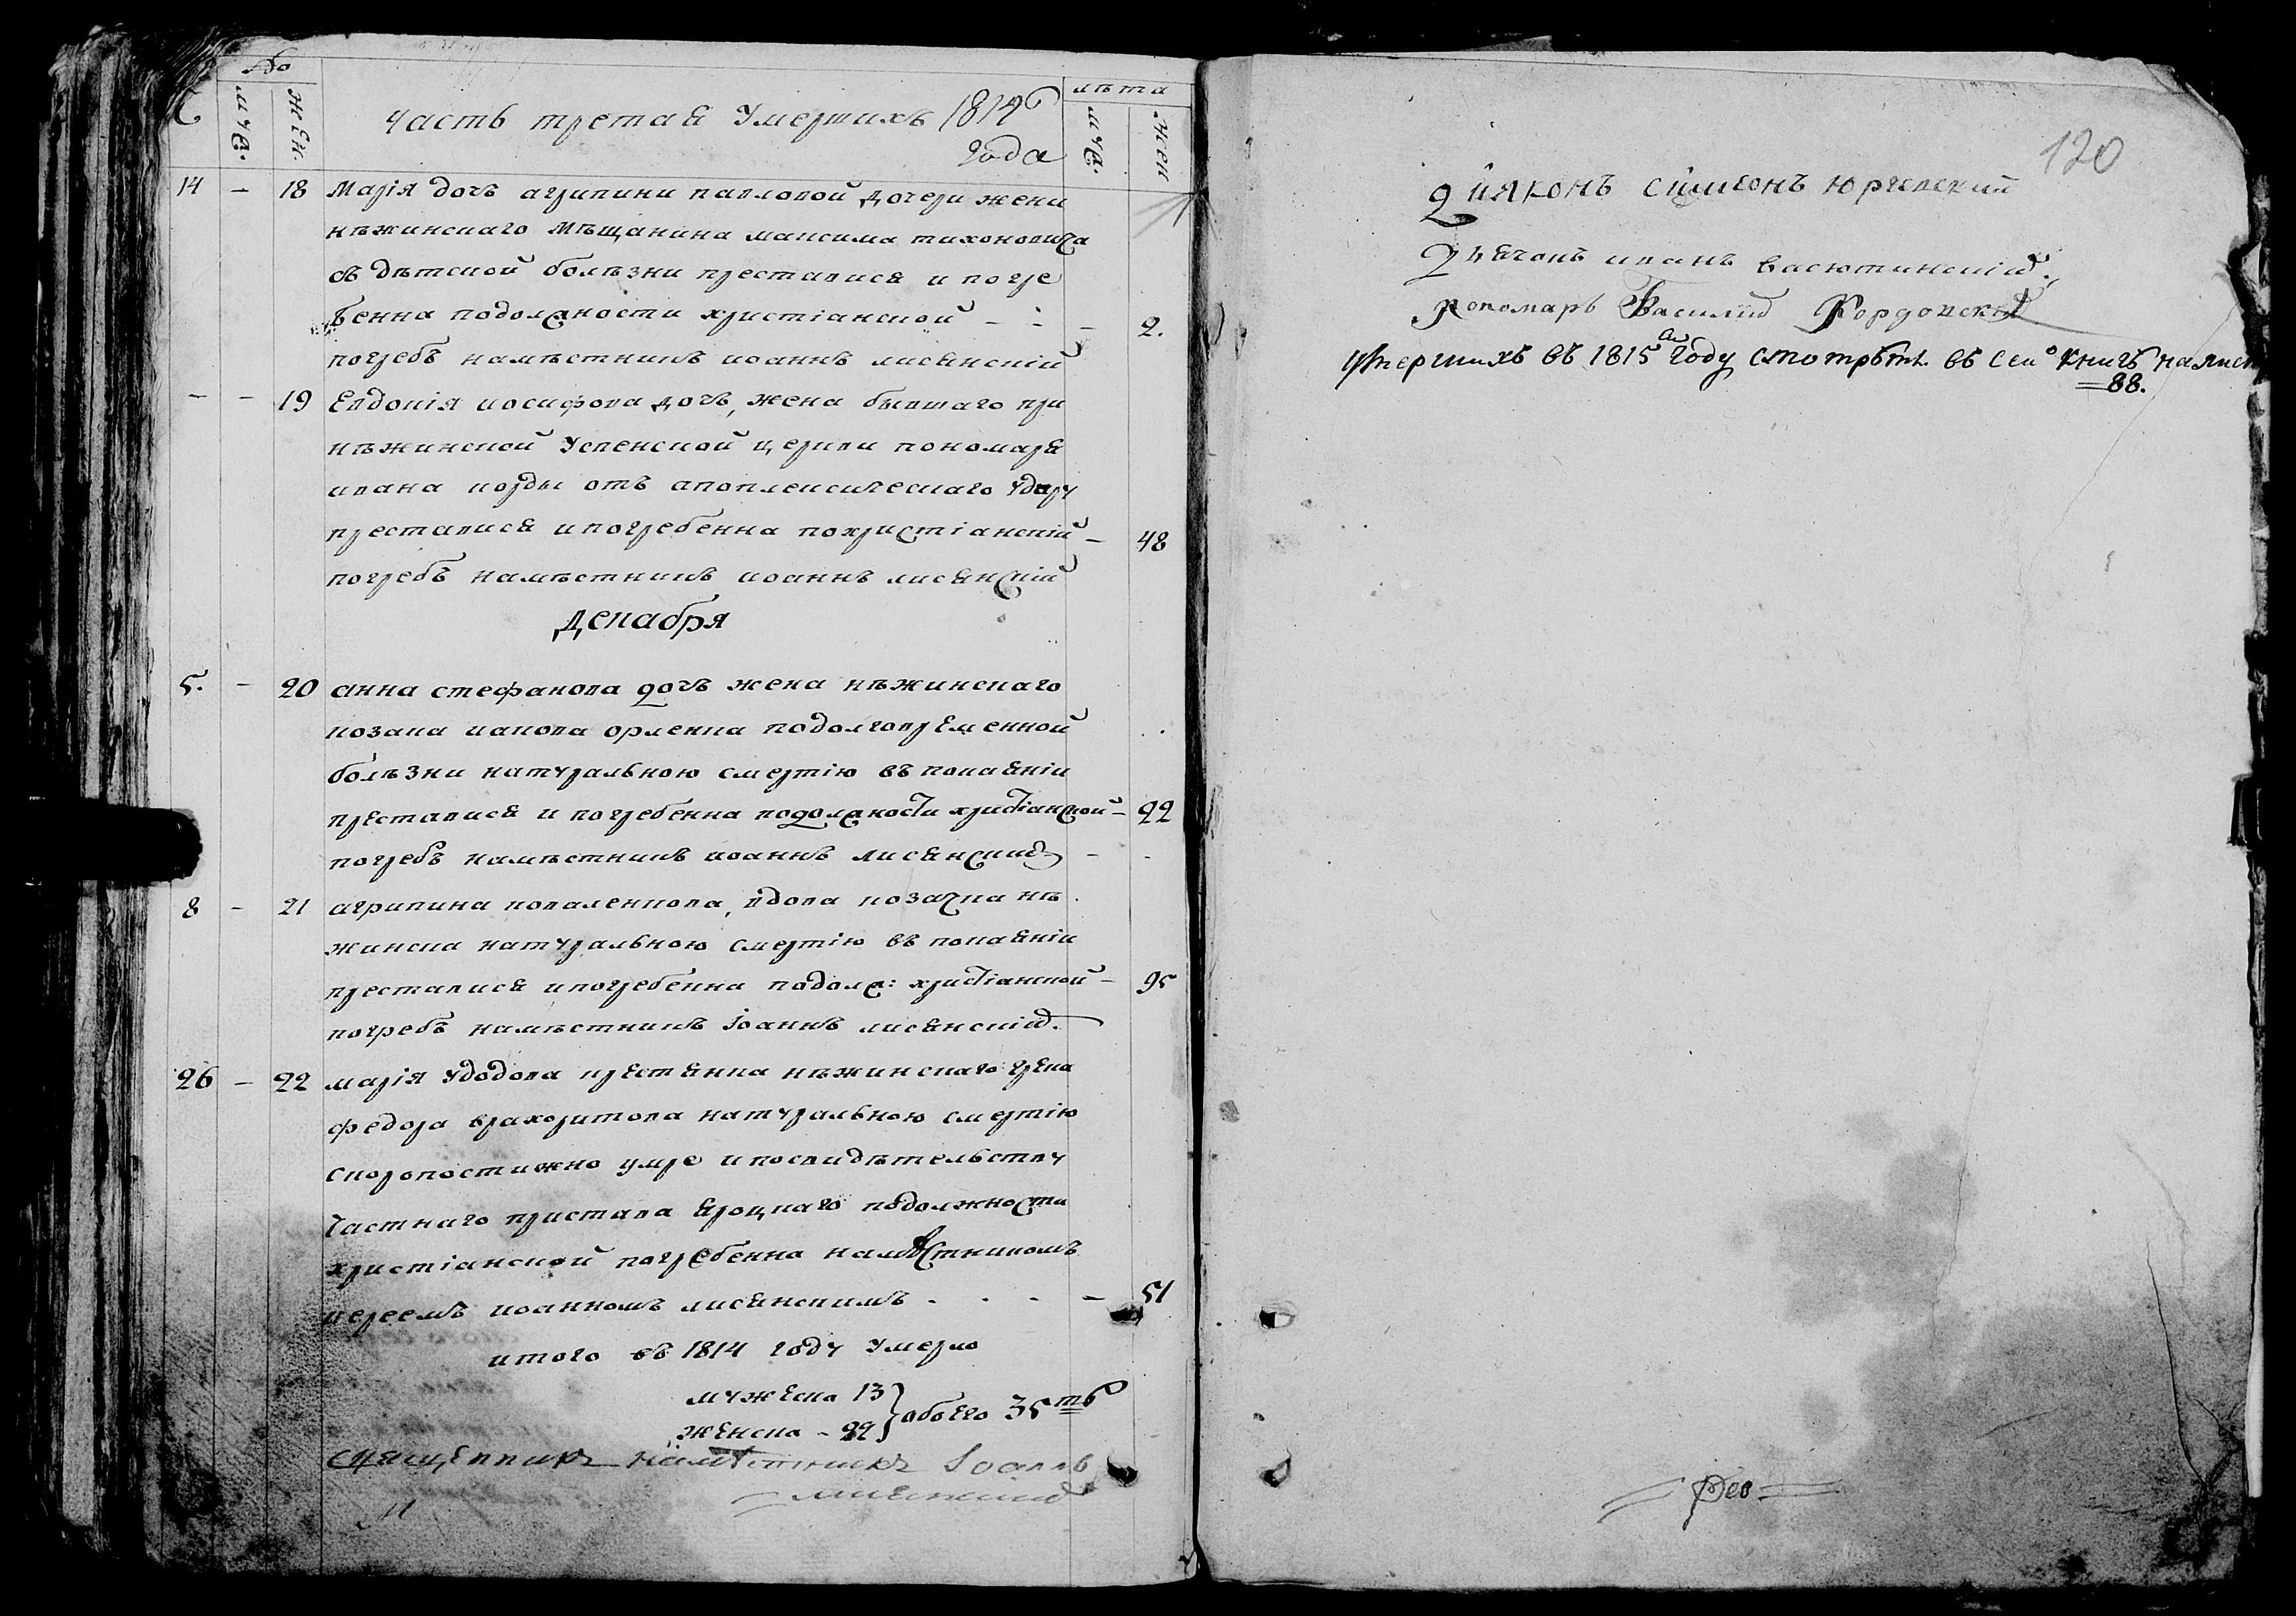 № лѣта
муж. жен. муж. жен
Часть третая Умершихъ 1814го
года
14 – 18 Марія дочъ агрипини павловой дочери жени
нѣжинскаго мѣщанина максима тихоновича
въ дѣтской болѣзни преставися и погре
бенна подолжности христіанской – – – 2.
погребъ намѣстникъ иоаннъ лисянскій
– – 19 Евдокія иосифова дочъ, жена бывшаго при
нѣжинской Успенской церкви пономаря
ивана корды отъ апоплексическаго удару
преставися и погребенна похристіанскій – 48
погребъ намѣстникъ иоаннъ лисянскій
Декабря
5. – 20 анна стефанова дочъ жена нѣжинскаго
козака иакова орленка подолговременной
болѣзни натуральною смертію въ покаяніи
преставися и погребенна подолжности христіанской – 22
погребъ намѣстникъ иоаннъ лисянскій –
8 – 21 агрипина коваленкова, вдова козачка нѣ
жинска натуральною смертію въ покаяніи
преставися и погребенна подолж: христіанской – 95
погребъ намѣстникъ іоаннъ лисянскій.
26 – 22 марія Удодова крестянка нѣжинскаго грека
федора натуральною смертію
скоропостижно умре и посвидѣтельству
Частнаго пристава яроцкаго подолжности
христіанской погребенна намѣстникомъ
иереемъ иоанномъ лисянскимъ . . . – 51
итого въ 1814 году умерло
мужеска 13 } обоего 35ть
женска – 22
священникъ намѣстникъ Іоаннъ
лисянскій
120
Діяконъ Сімеонъ Юргевский
Дьячокъ иванъ васютинскій.
пономаръ Василій Кордовскій
умершихъ въ 1815м году смотрѣть въ сей книгѣ на лист
88.